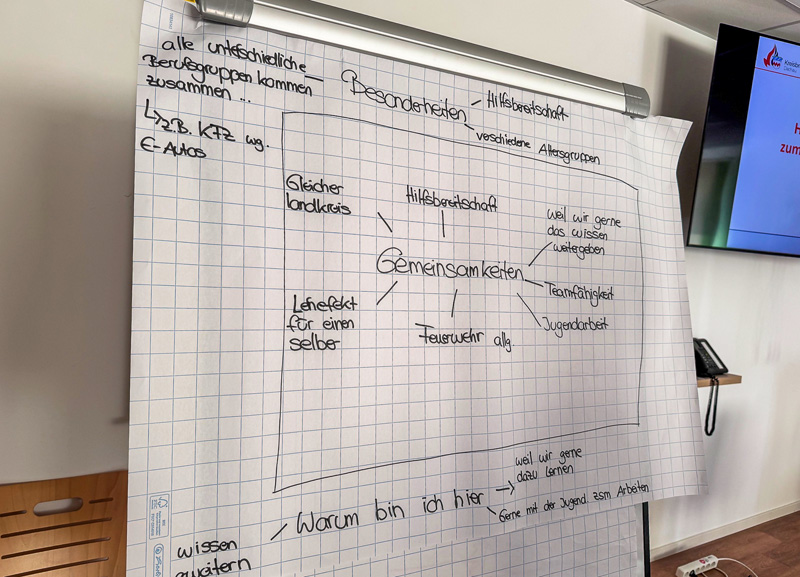 alle unterschiedliche
Berufsgruppen kommen
zusammen ...
↳ z.B. KFZ wg.
E-Autos
Besonderheiten
Hilfsbereitschaft
verschiedene Altersgruppen
Gleicher
landkreis
Hilfsbereitschaft
weil wir gerne
das wissen
weitergeben
Gemeinsamkeiten
Teamfähigkeit
Jugendarbeit
Lerneffekt
für einen
selber
Feuerwehr allg.
Warum bin ich hier
weil wir gerne
dazu lernen
Gerne mit der Jugend zsm Arbeiten
wissen
erweitern
H
zum